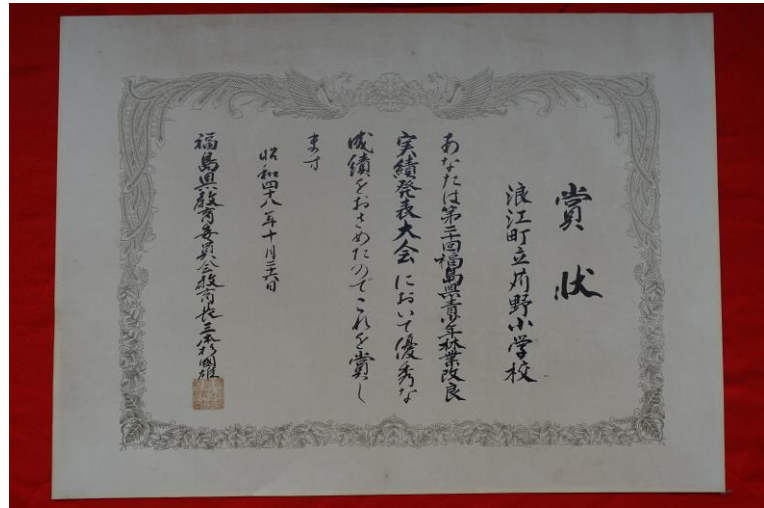 賞状
浪江町立苅野小学校
あなたは第二十回福島県青少年林業改良
実績発表大会において優秀な
成績をおさめたのでこれを賞し
ます
昭和四十八年十月二十六日
福島県教育委員会教育長三本杉國雄